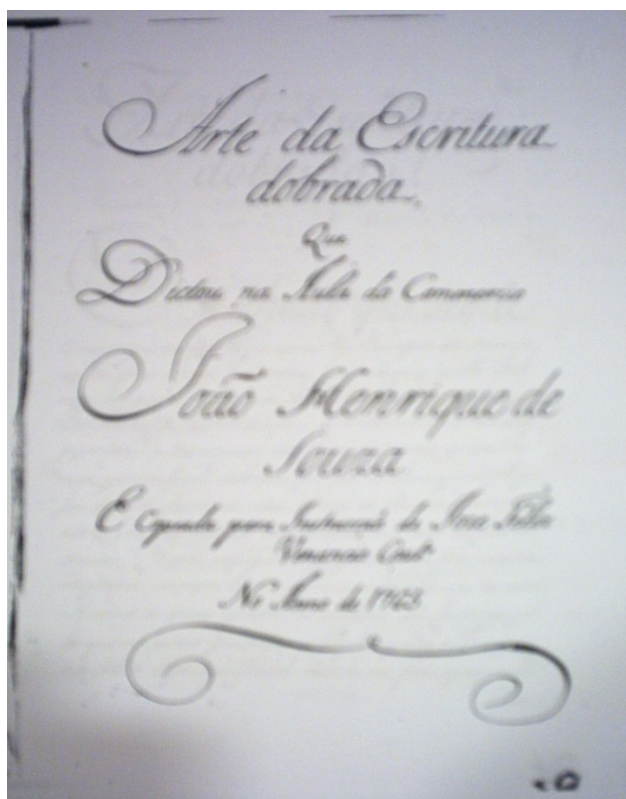 Arte da Escritura
dobrada.
Que
Dictou na Aula do Commercio
João Henrique de
Souza
E Copiada para Instrucaõ de Joze Felis
Venancio Cout.º
No Anno de 1765